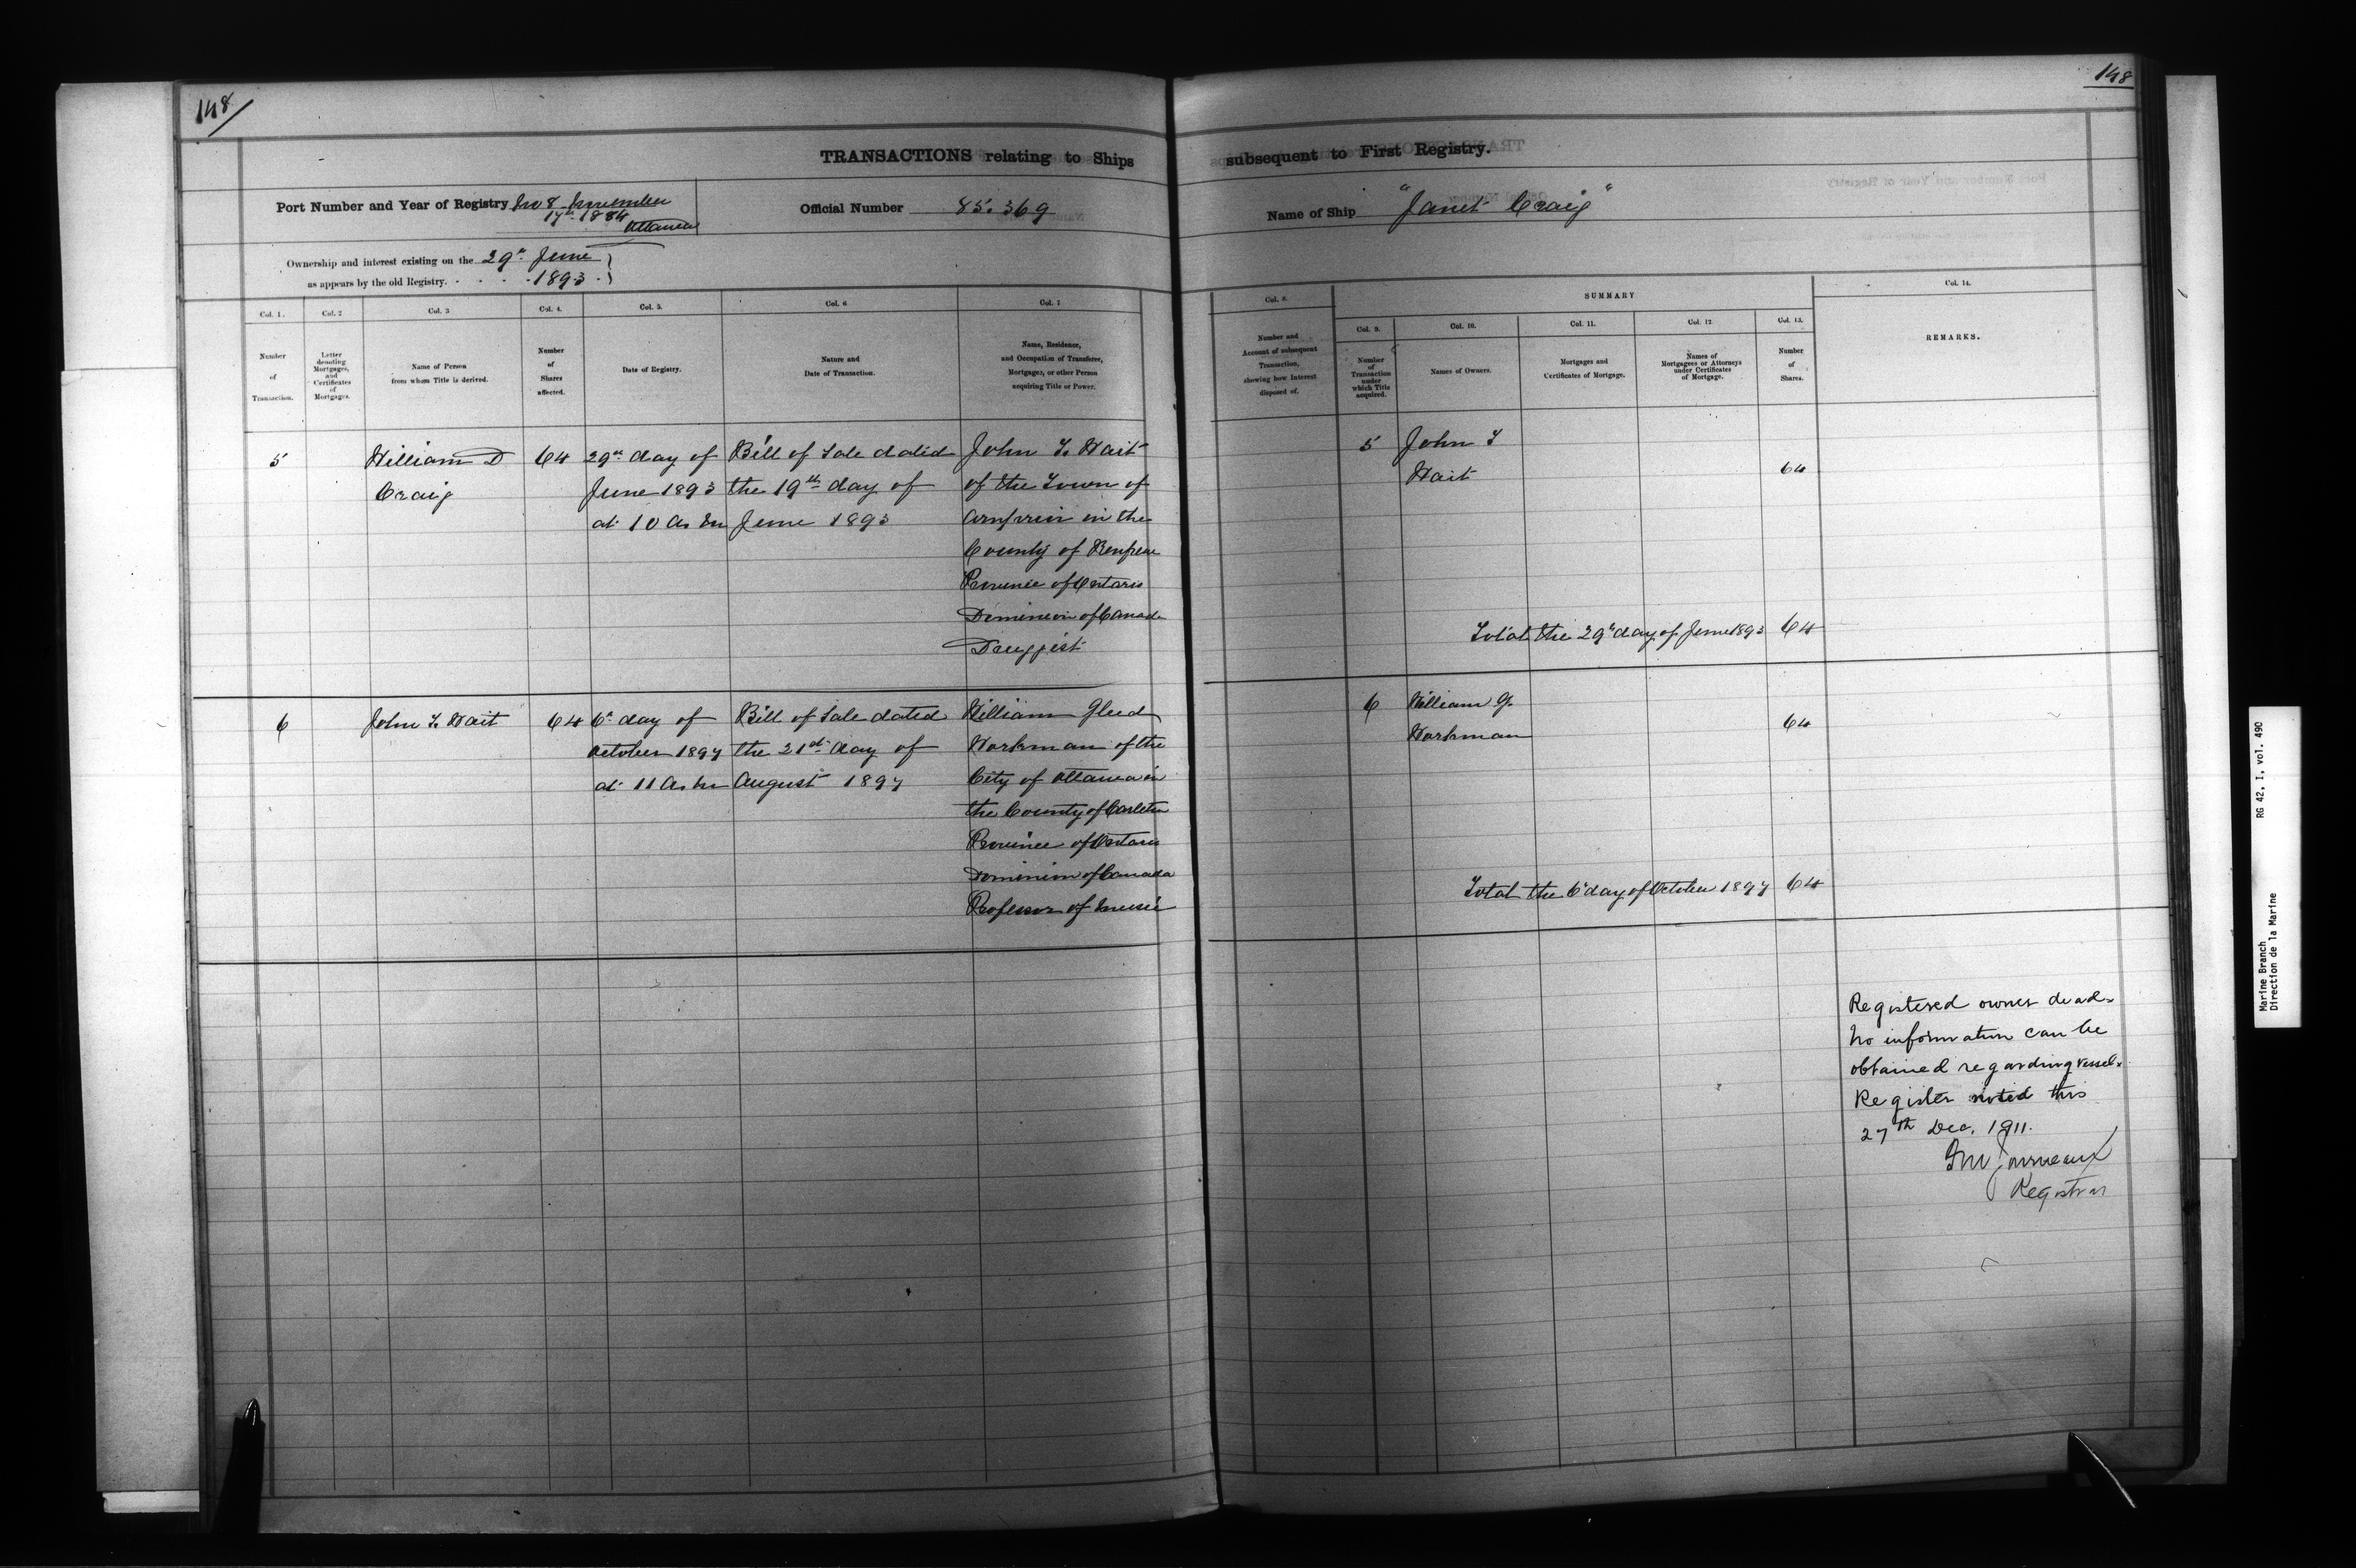 148
148
TRANSACTIONS relating to Ships subsequent to First Registry.
Port Number and Year of Registry No 8 November
17th 1884
Ottawa
Official Number 85.369
Name of Ship "Janet Craig"
Ownership and interest existing on the 29th June
as appears by the old Registry. 1893
Col. 1.
Number
of
Transaction.
Col. 2
Letter
denoting
Mortgages,
and
Certificates
of
Mortgages.
Col. 3
Name of Person
from whom Title is derived.
Col. 4.
Number
of
Shares
affected.
Col. 5.
Date of Registry.
Col. 6
Nature and
Date of Transaction.
Col. 7
Name, Residence,
and Occupation of Transferee,
Mortgages, or other Person
acquiring Title or Power.
Col. 8.
Number and
Account of subsequent
Transaction,
showing how Interest
disposed of.
SUMMARY
Col. 9.
Number
of
Transaction
under
which Title
acquired.
Col. 10.
Names of Owners.
Col. 11.
Mortgages and
Certificates of Mortgage.
Col. 12
Names of
Mortgagees or Attorneys
under Certificates
of Mortgage.
Col. 13.
Number
of
Shares.
Col. 14.
REMARKS.
5
William D
Craig
64
29th day of
June 1893
at 10 A.M
Bill of Sale dated
the 19th day of
June 1893
John T. Wait
of the Town of
Arnprior in the
County of Renfrew
Province of Ontario
Dominion of Canada
Druggist
5
John T
Wait
64
Total the 29th day of June 1893 64
6
John T. Wait
64
6th day of
October 1897
at 11 A.M
Bill of Sale dated
the 21st day of
August 1897
William Gleed
Workman of the
City of Ottawa in
the County of Carleton
Province of Ontario
Dominion of Canada
Professor of Music
6
William G.
Workman
64
Total the 6th day of October 1897 64
Registered owner dead.
No information can be
obtained regarding vessel.
Register noted this
27th Dec. 1911.
Registrar
Marine Branch
Direction de la Marine
RG 42, I, vol. 490